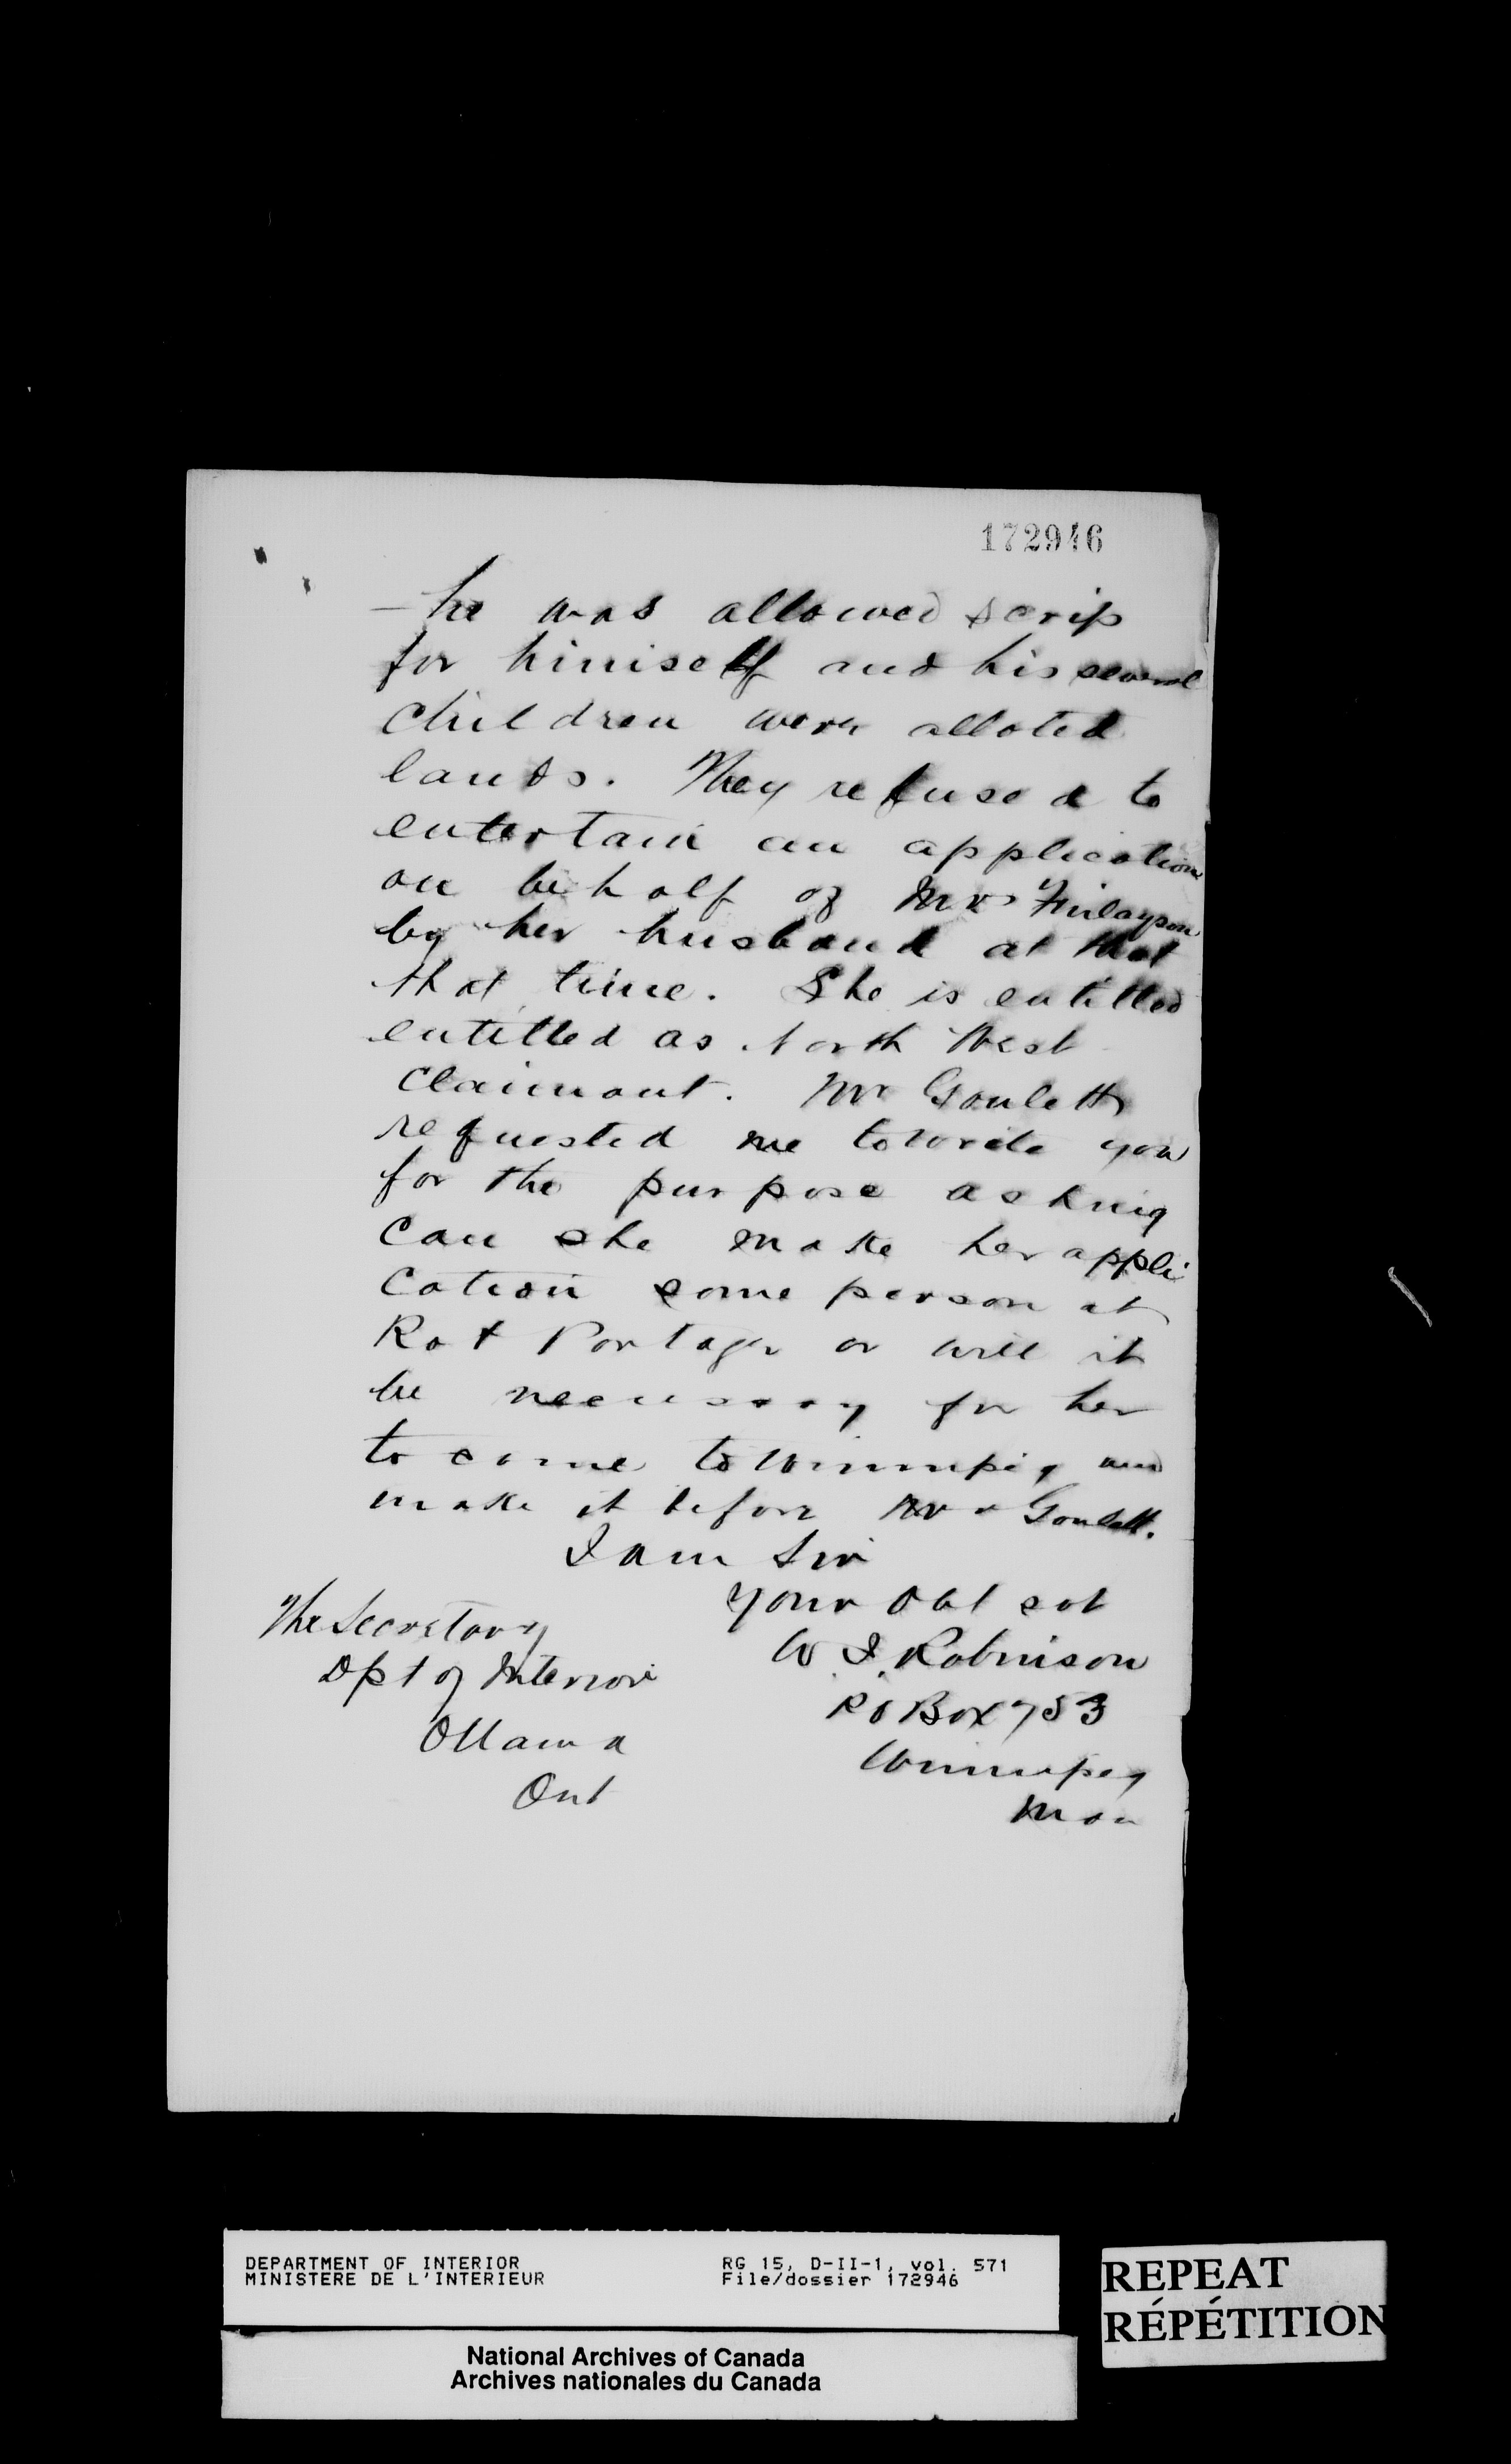 172946
— he was allowed scrip
for himself and his several
children were alloted
lands. They refused to
entertain an application
on behalf of Mrs Finlayson
by her husband at that
that time. She is entitled
entitled as North West
claimant. Mr Goulett
requested me to write you
for the purpose asking
can she make her appli
cation some person at
Rat Portage or will it
be necessary for her
to come to Winnipeg and
make it before Mr Goulett.
I am Sir
Your Obt svt
W. J. Robinson
P O Box 753
Winnipeg
Man
The Secretary
Dpt of Interior
Ottawa
Ont
DEPARTMENT OF INTERIOR
MINISTERE DE L'INTERIEUR
RG 15, D-II-1, vol. 571
File/dossier 172946
National Archives of Canada
Archives nationales du Canada
REPEAT
RÉPÉTITION